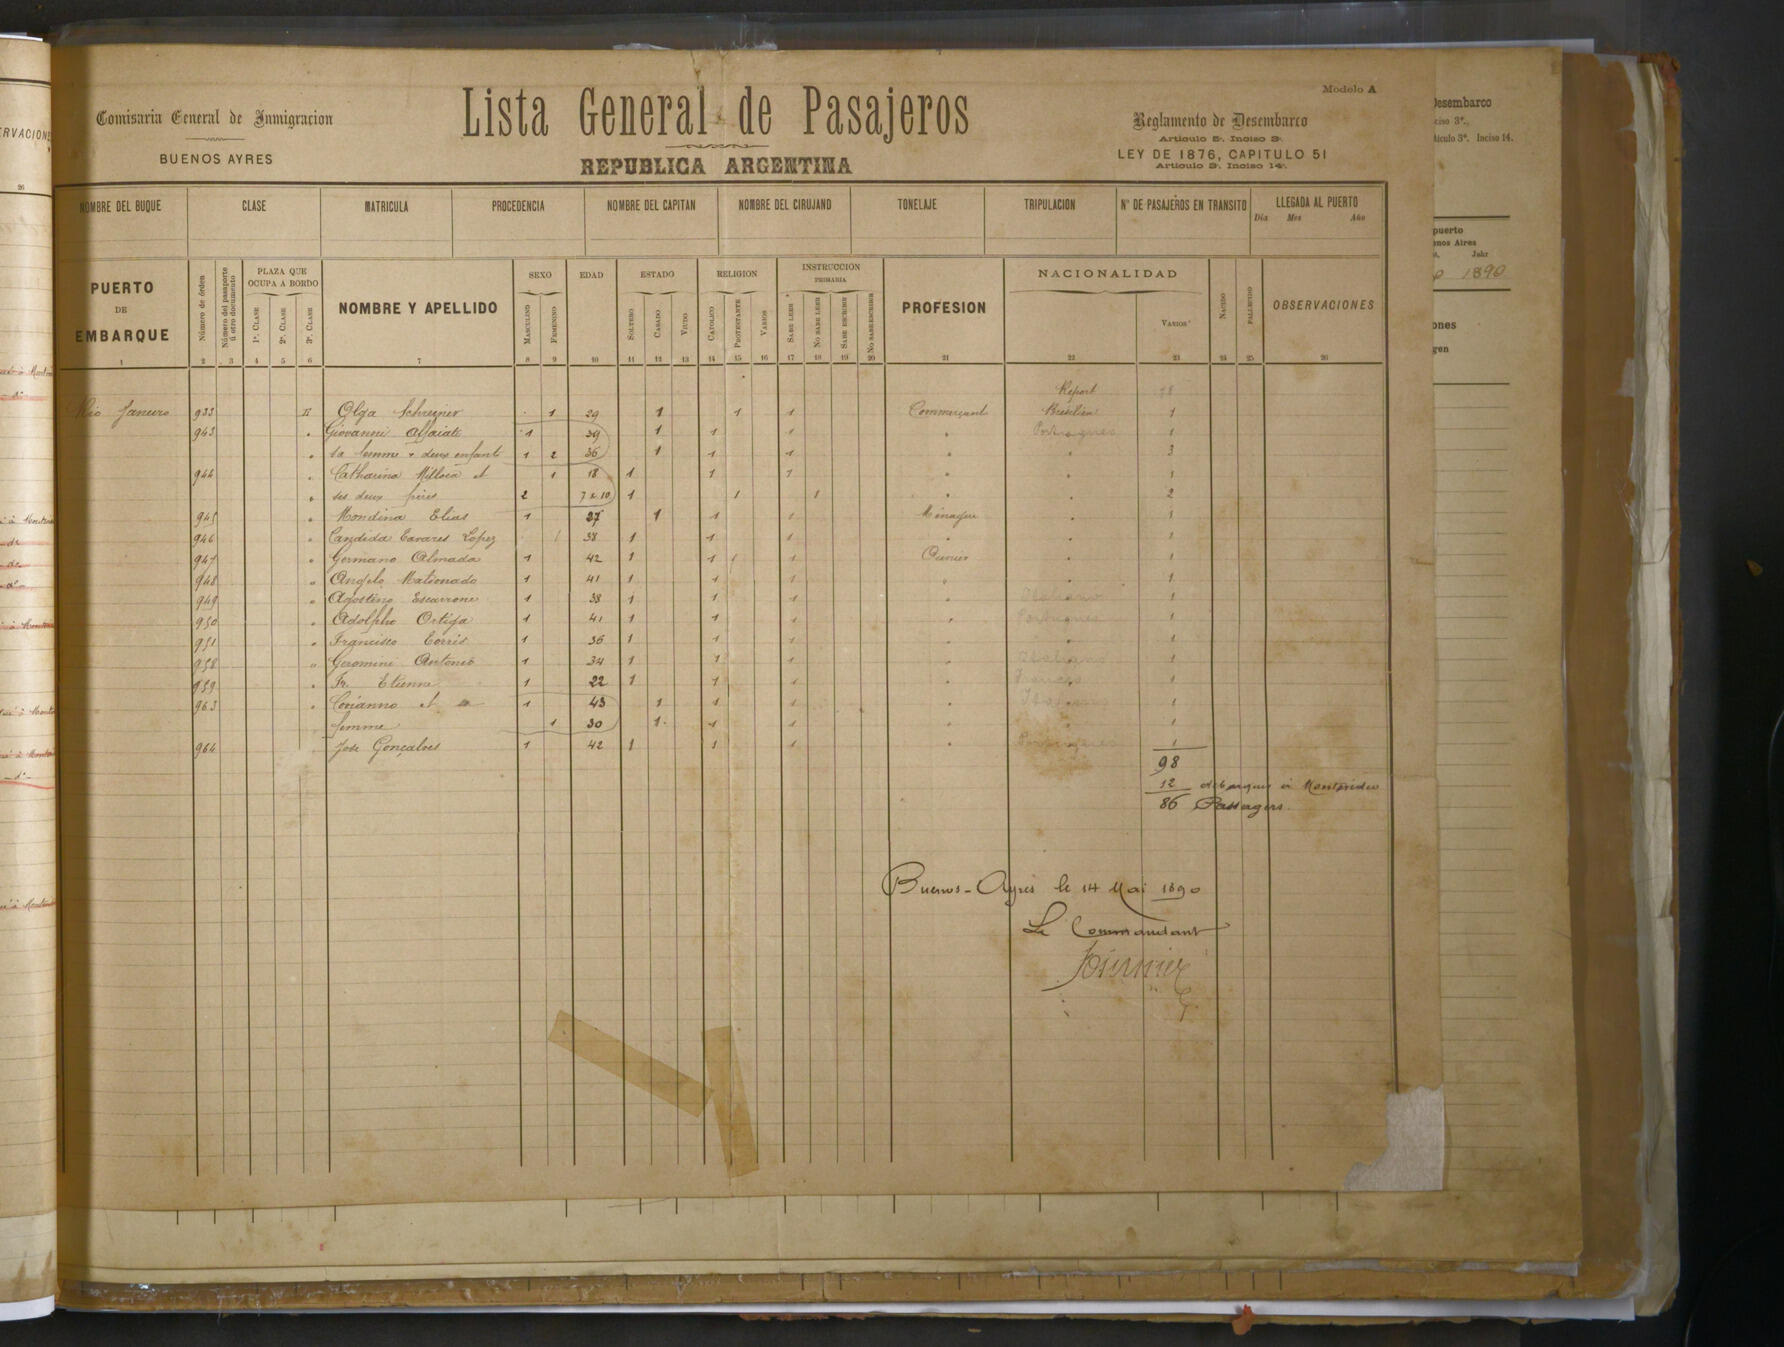 Comisaria General de Inmigracion
BUENOS AYRES
Lista General de Pasajeros
REPUBLICA ARGENTINA
Modelo A
Reglamento de Desembarco
Articulo 5º. Inciso 3º.
LEY DE 1876, CAPITULO 51
Articulo 3º. Inciso 14º.
NOMBRE DEL BUQUE CLASE MATRICULA PROCEDENCIA NOMBRE DEL CAPITAN NOMBRE DEL CIRUJANO TONELAJE TRIPULACION Nº DE PASAJEROS EN TRANSITO LLEGADA AL PUERTO
Dia Mes Año
PUERTO DE EMBARQUE Número de órden Número del pasaporte ú otro documento PLAZA QUE OCUPA A BORDO 1ª. CLASE 2ª. CLASE 3ª. CLASE NOMBRE Y APELLIDO SEXO MASCULINO FEMENINO EDAD ESTADO SOLTERO CASADO VIUDO RELIGION CATOLICO PROTESTANTE VARIOS INSTRUCCION PRIMARIA SABE LEER NO SABE LEER SABE ESCRIBIR NO SABE ESCRIBIR PROFESION NACIONALIDAD VARIOS NACIDO FALLECIDO OBSERVACIONES
1 2 3 4 5 6 7 8 9 10 11 12 13 14 15 16 17 18 19 20 21 22 23 24 25 26
Report 78
Rio Janeiro 933 II Olga Schreiner 1 29 1 1 1 Commerçant Brésilien 1
943 " Giovanni Alfaiate 1 39 1 1 1 " Portugues 1
" sa femme + deux enfants 1 2 36 1 1 1 " " 3
944 " Catharina et 1 18 1 1 1 " 1
" ses deux frères 2 7 & 10 1 1 1 " " 2
945 " Mondina Elias 1 27 1 1 1 Ménagère " 1
946 " Candida Tavares Lopez 1 38 1 1 1 " " 1
947 " Germano Almada 1 42 1 1 1 1 Ouvrier " 1
948 " Angelo Mationado 1 41 1 1 1 " " 1
949 " Agostino Escarrone 1 38 1 1 1 " Italiano 1
950 " Adolpho Ortiga 1 41 1 1 1 " Portugues 1
951 " Francisco Torris 1 36 1 1 1 " " 1
958 " Geromini Antonio 1 34 1 1 1 " Italiano 1
959 " Fr. Etienne 1 22 1 1 1 " Frances 1
963 " Corianno et sa 1 43 1 1 1 " Italiano 1
femme 1 30 1 1 1 " " 1
964 José Gonçalves 1 42 1 1 1 " Portugues 1
98
12 debarqués à Montevideo
86 Passagers.
Buenos-Ayres le 14 Mai 1890
Le Commandant
Fournier